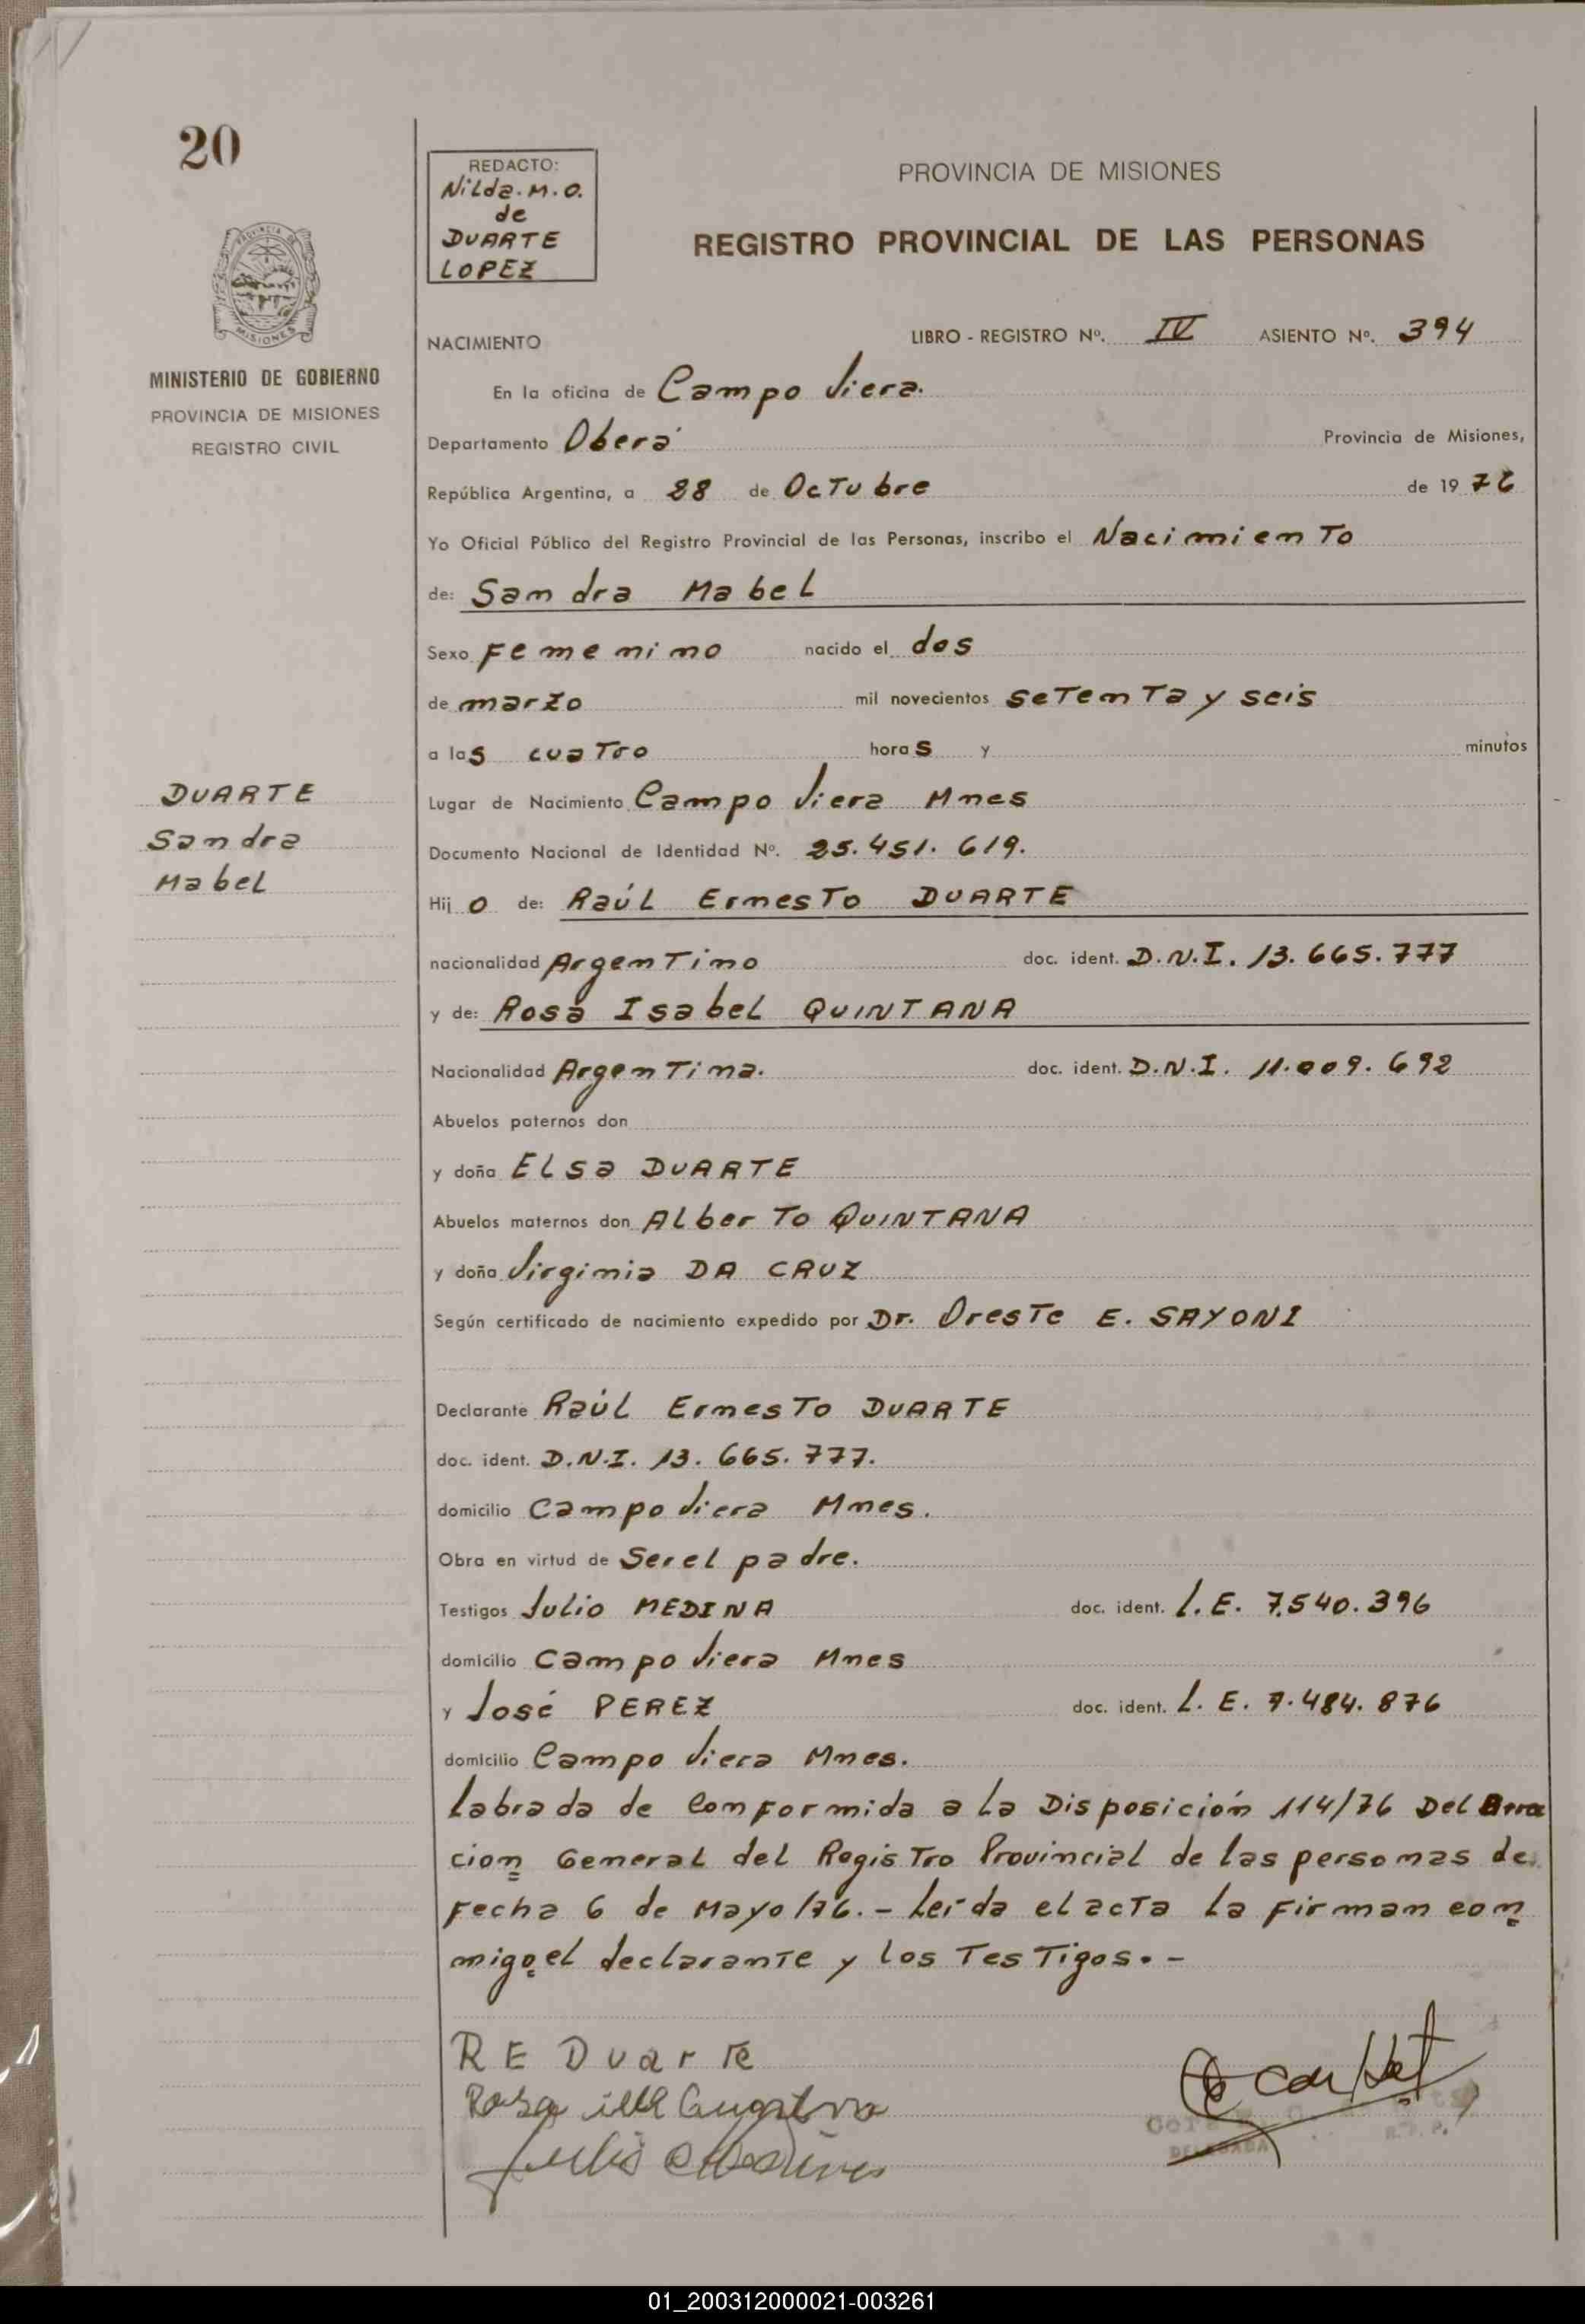 20
REDACTO:
Nilda. M. O.
de
DUARTE
LOPEZ
PROVINCIA DE MISIONES
REGISTRO PROVINCIAL DE LAS PERSONAS
PROVINCIA DE
MISIONES
MINISTERIO DE GOBIERNO
PROVINCIA DE MISIONES
REGISTRO CIVIL
NACIMIENTO LIBRO - REGISTRO Nº. IV ASIENTO Nº. 394
En la oficina de Campo Viera.
Departamento Oberá Provincia de Misiones,
República Argentina, a 28 de Octubre de 19 76
Yo Oficial Público del Registro Provincial de las Personas, inscribo el Nacimiento
de: Sandra Mabel
Sexo Femenino nacido el dos
de marzo mil novecientos setenta y seis
a las cuatro horas y minutos
DUARTE
Sandra
Mabel
Lugar de Nacimiento Campo Viera Mnes
Documento Nacional de Identidad Nº. 25.451.619.
Hijo de: Raúl Ernesto DUARTE
nacionalidad Argentino doc. ident. D.N.I. 13.665.777
y de: Rosa Isabel QUINTANA
Nacionalidad Argentina. doc. ident. D.N.I. 11.009.692
Abuelos paternos don
y doña Elsa DUARTE
Abuelos maternos don Alberto QUINTANA
y doña Virginia DA CRUZ
Según certificado de nacimiento expedido por Dr. Oreste E. SAYONI
Declarante Raúl Ernesto DUARTE
doc. ident. D.N.I. 13.665.777.
domicilio Campo Viera Mnes.
Obra en virtud de Ser el padre.
Testigos Julio MEDINA doc. ident. L.E. 7.540.396
domicilio Campo Viera Mnes
y José PEREZ doc. ident. L.E. 7.484.876
domicilio Campo Viera Mnes.
Labrada de Conformida a la Disposición 114/76 Del
cion General del Registro Provincial de las personas de
Fecha 6 de Mayo/76. - Leída el acta la Firman con
migo el declarante y los Testigos. -
R E Duarte
Rosa
Julio
DELEGADA
01_200312000021-003261